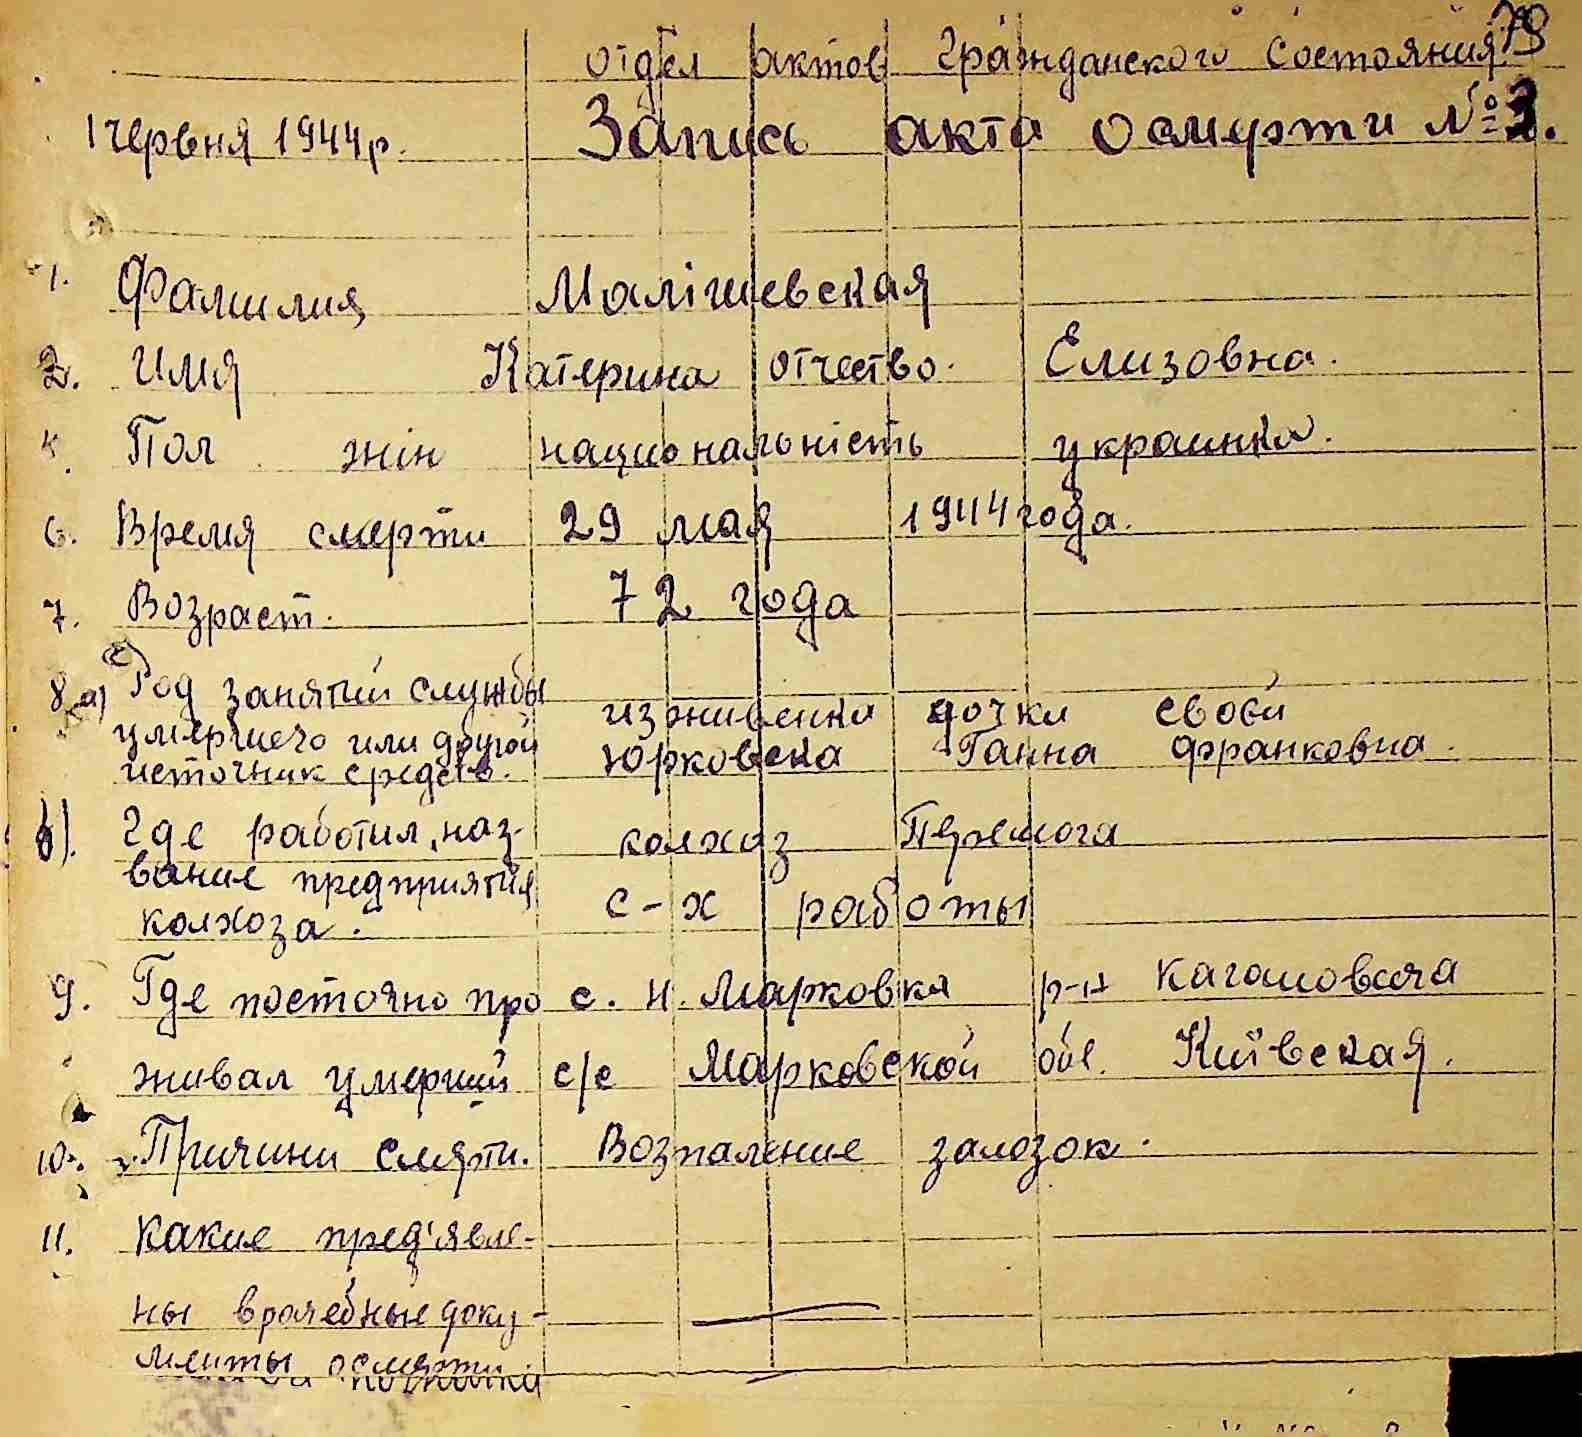 79
отдел актов гражданского состояния.
1 червня 1944 р. Запись акта о смерти № 3.
1. Фамилия Малішевская
2. Имя Катерина отчество. Елизовна.
4. Пол жін национальність украинка.
6. Время смерти 29 мая 1944 года.
7. Возраст. 72 года
8 а) Род занятий службы
умершего или другой
источник средств.
изживенка дочки своей
Юрковска Ганна Франковна.
б). Где работил, наз-
вание предприятия
колхоза.
колхоз Перемога
с-х работы
9. Где постояно про с. н. Марковка р-н Кагановича
живал умерший с/с Марковской обл. Київская.
10. Причини смерти. Возпаление залозок.
11. Какие пред'явле-
ны врачебные доку-
менты о смерти